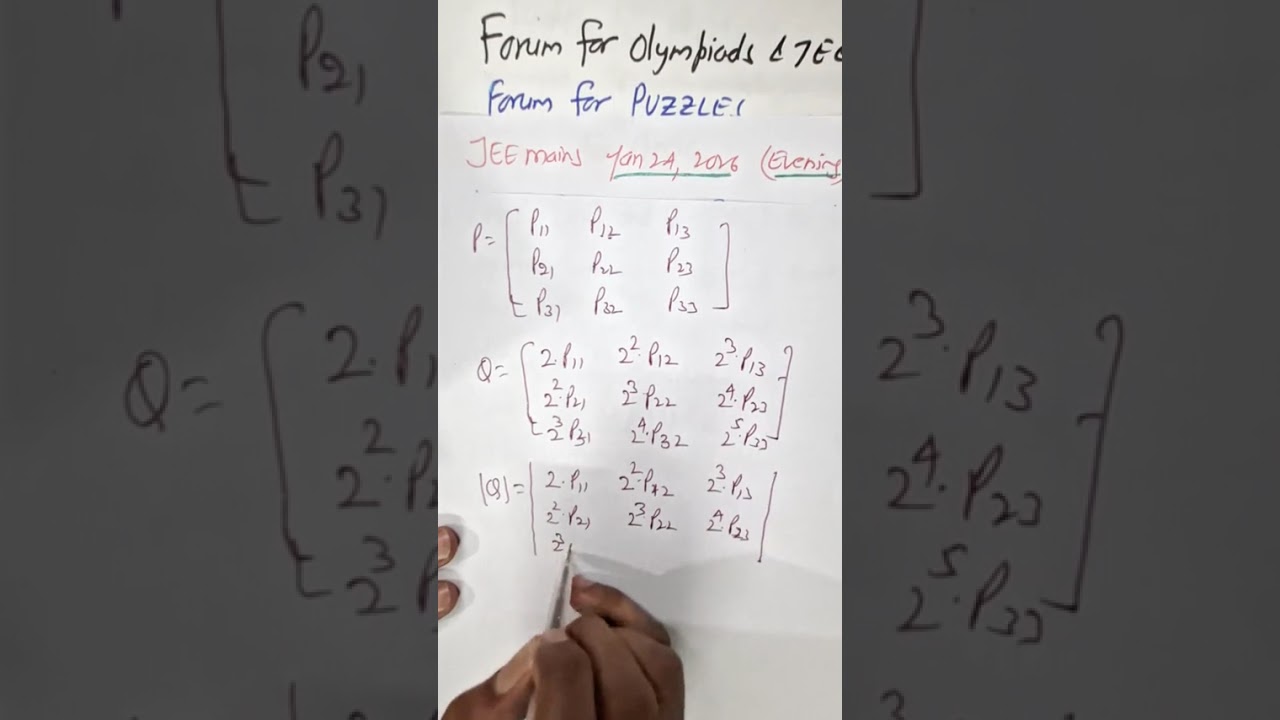 Forum for Olympiads & JEE
Forum for PUZZLES
JEE mains Jan 24, 2026 (Evening)
P= [ P11 P12 P13
P21 P22 P23
P31 P32 P33 ]
Q= [ 2·P11 2²·P12 2³·P13
2²·P21 2³P22 2⁴·P23
2³P31 2⁴·P32 2⁵·P33 ]
|Q|= | 2·P11 2²·P12 2³·P13 |
2²·P21 2³P22 2⁴·P23
2³